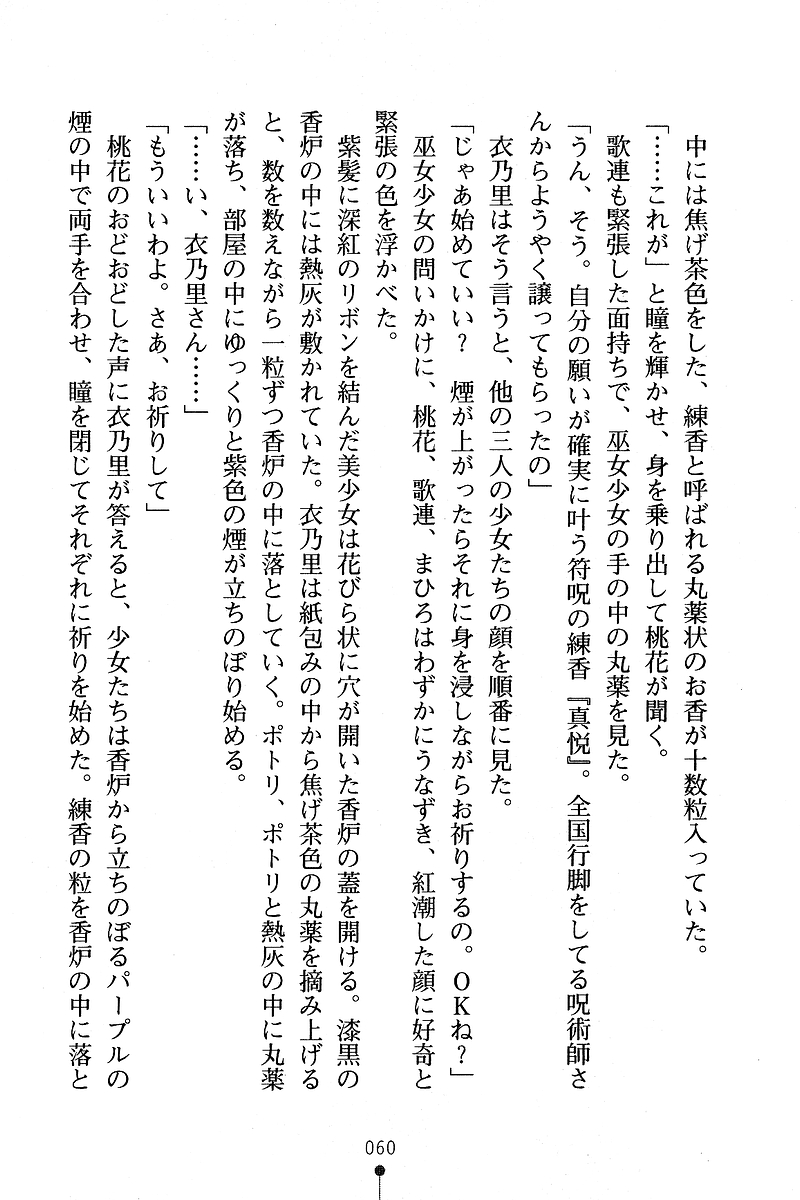 中には焦げ茶色をした、練香と呼ばれる丸薬状のお香が十数粒入っていた。
「……これが」と瞳を輝かせ、身を乗り出して桃花が聞く。
歌連も緊張した面持ちで、巫女少女の手の中の丸薬を見た。
「うん、そう。自分の願いが確実に叶う符呪の練香『真悦』。全国行脚をしてる呪術師さ
んからようやく譲ってもらったの」
衣乃里はそう言うと、他の三人の少女たちの顔を順番に見た。
「じゃあ始めていい？　煙が上がったらそれに身を浸しながらお祈りするの。ＯＫね？」
巫女少女の問いかけに、桃花、歌連、まひろはわずかにうなずき、紅潮した顔に好奇と
緊張の色を浮かべた。
紫髪に深紅のリボンを結んだ美少女は花びら状に穴が開いた香炉の蓋を開ける。漆黒の
香炉の中には熱灰が敷かれていた。衣乃里は紙包みの中から焦げ茶色の丸薬を摘み上げる
と、数を数えながら一粒ずつ香炉の中に落としていく。ポトリ、ポトリと熱灰の中に丸薬
が落ち、部屋の中にゆっくりと紫色の煙が立ちのぼり始める。
「……い、衣乃里さん……」
「もういいわよ。さあ、お祈りして」
桃花のおどおどした声に衣乃里が答えると、少女たちは香炉から立ちのぼるパープルの
煙の中で両手を合わせ、瞳を閉じてそれぞれに祈りを始めた。練香の粒を香炉の中に落と
060